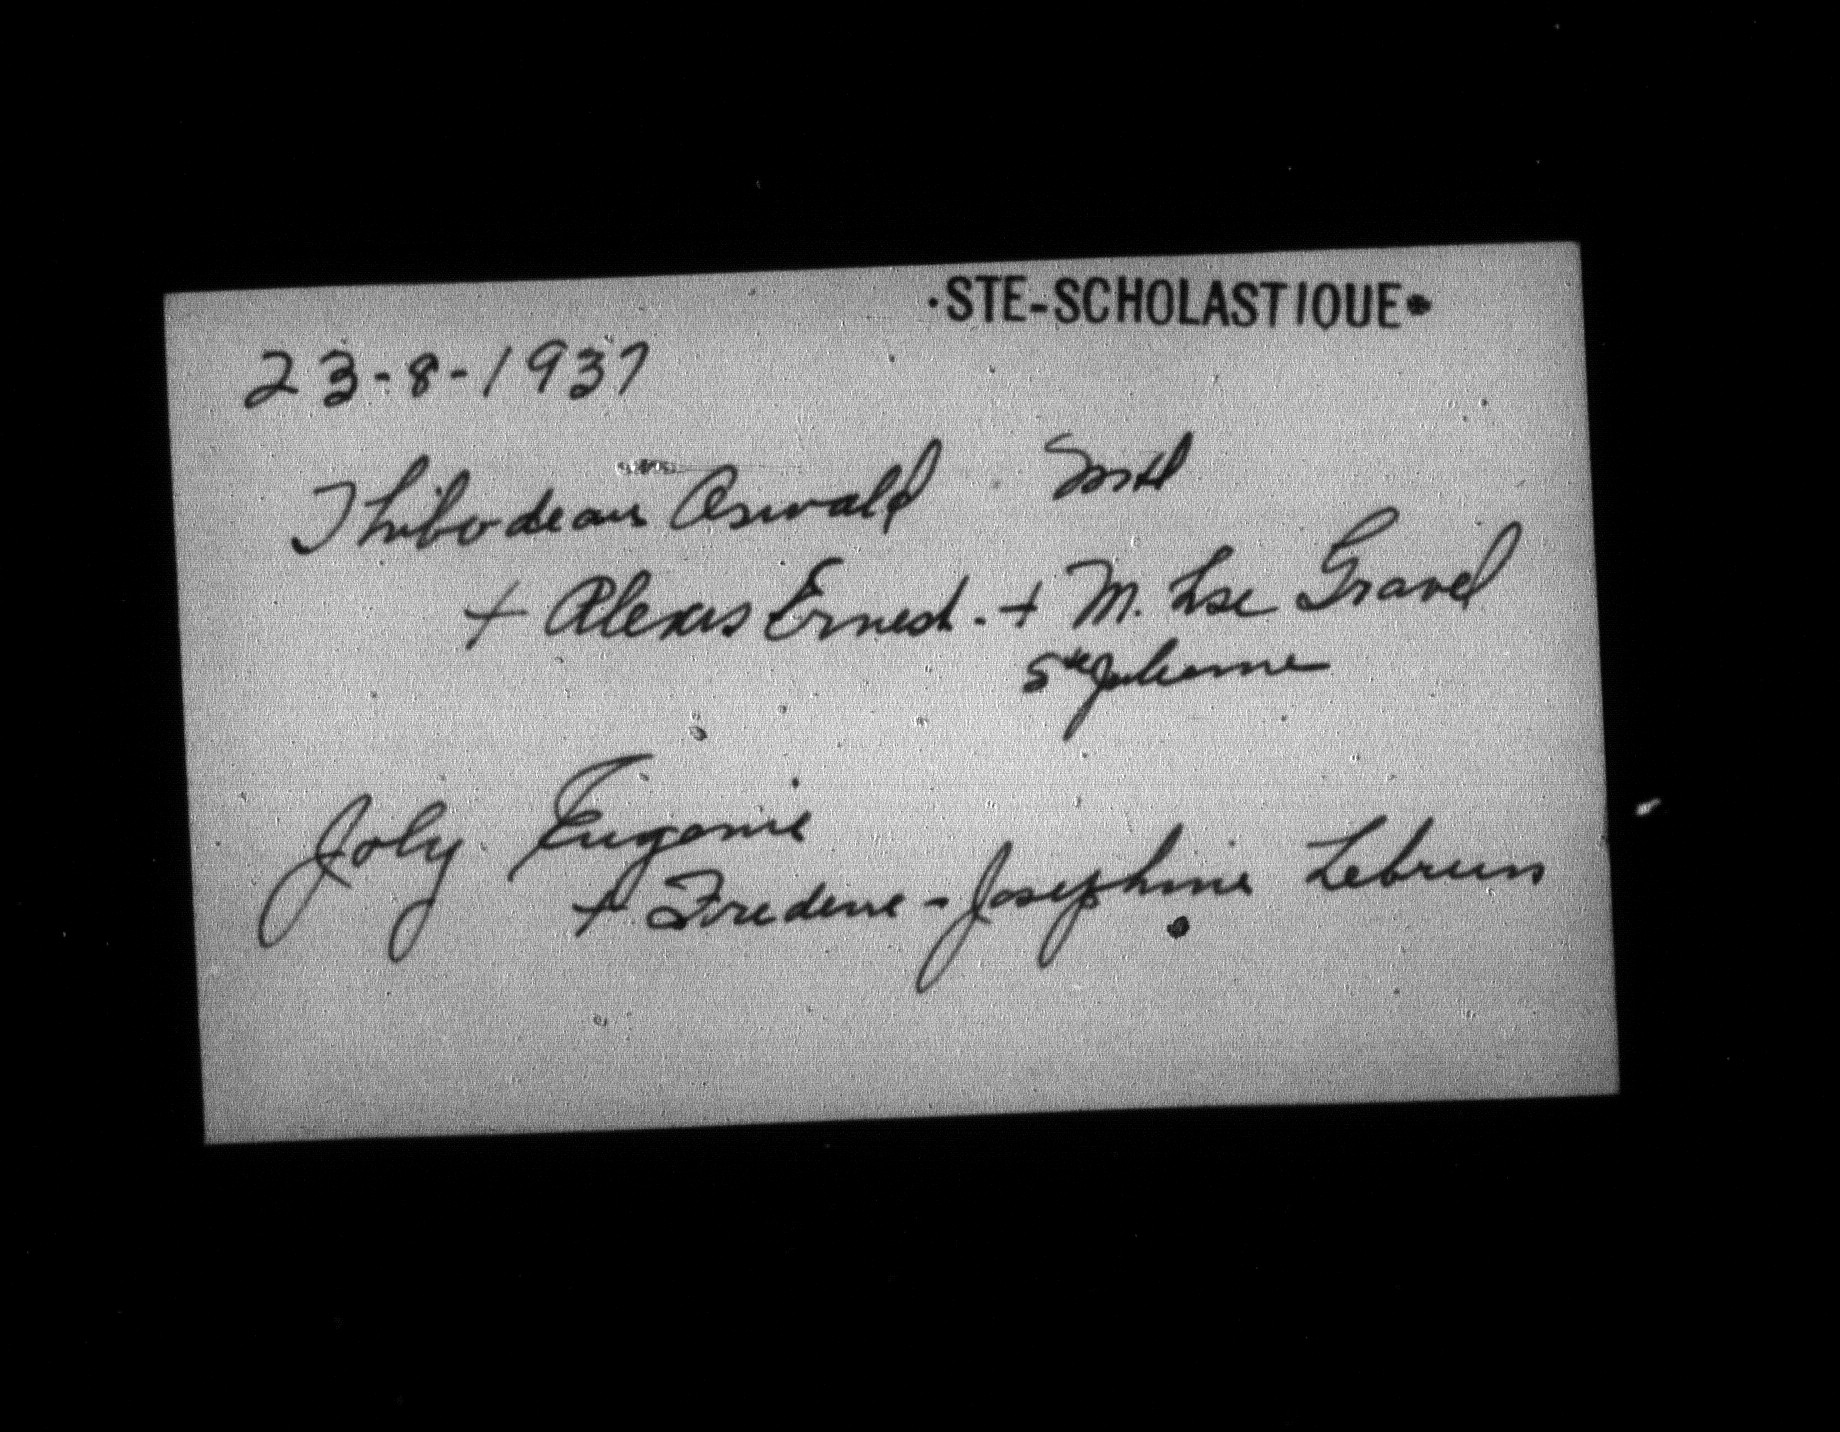 ·STE-SCHOLASTIQUE·
23-8-1937
Thibodeau Oswald Mtl
+ Alexis Ernest - + M. Lse Gravel
Ste Julienne
Joly Eugenie
+ Frederic - Josephine Lebrun